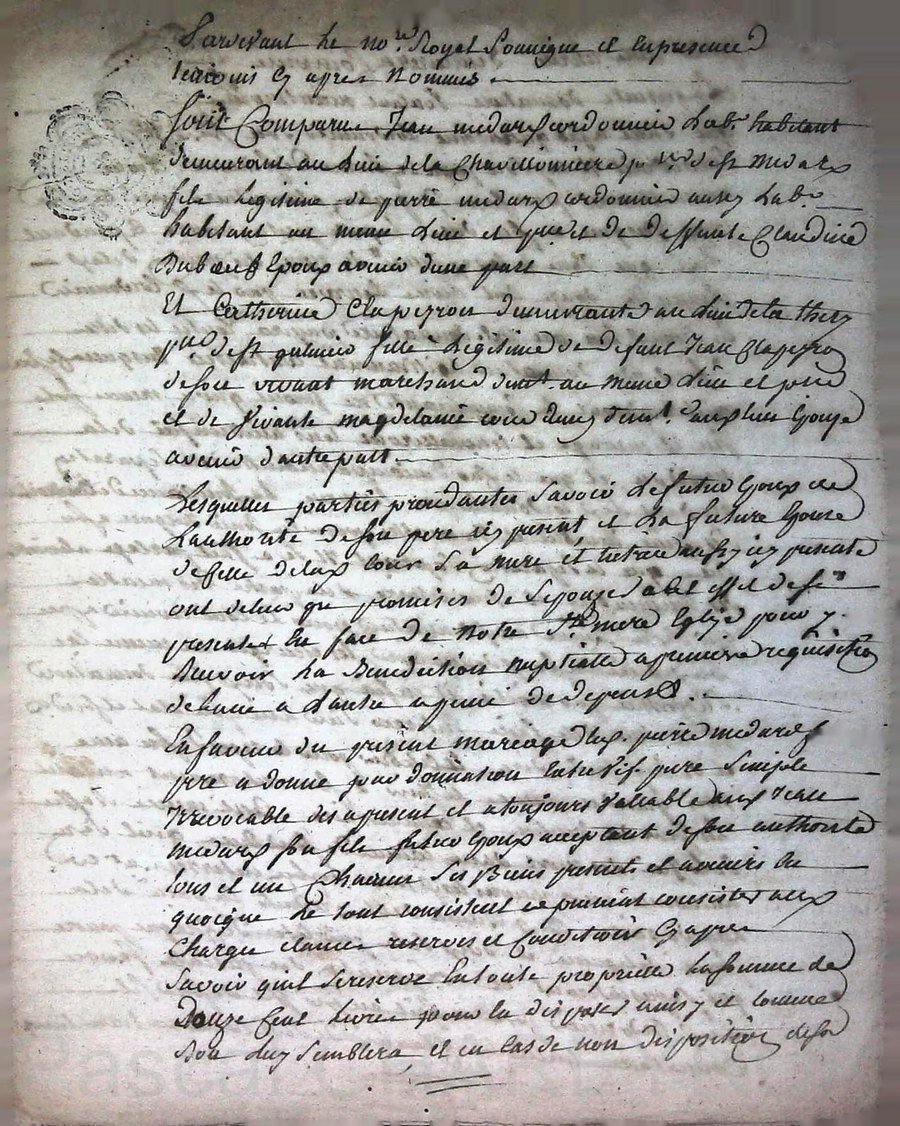 Pardevant Le no.re Royal Soussigne et En presence d
temoins Cy apres Nommés
Sont Comparus Jean medard cordonnier Lab.r habitant
demeurant au Lieu de la Chavillionniere p.sse de st medard
fils Legitime de pierre medard cordonnier aussy Lab.r
habitant au meme Lieu et p.sse et de deffunte Claudine
Dubœuf Epoux avenir dune part
Et Catherine Clapeyron demeurante au Lieu de la thery
p.sse de st galmier fille Legitime de defunt Jean Clapeyron
de son vivant marchand dem.t au meme Lieu et p.sse
et de vivante magdelaine dem.t Epouse
avenir dautre part
Lesquelles parties procedantes Savoir Le futur Epoux de
Lauthorité de son pere icy present et La future Epouse
de celle de Sa mere et tutrice aussy icy presente
ont de leur gré promises de Sepouser a cet effet de se
presenter En face de Notre S.te mere Eglise pour y
Recevoir La Benediction nuptialle a premiere requisition
de Lune a Lautre a peine de depens
En faveur du present mariage pierre medard
pere a donné par donnation Entrevif pure Simple
Irrevocable des apresent et a toujours Valiable aud. Jean
medard Son fils futur Epoux acceptant de son authorité
tous et un Chacun Ses Biens presents et avenirs En
quoique Le tout consistent ce pourroit consister aux
Charges clauses reserves et Conditions Cyapres
Savoir quil Se reserve En toute propriette La Somme de
Douze Cent Livres pour En disposer ainsy et comme
Bon Luy Semblera, et en Cas de non disposition de Son